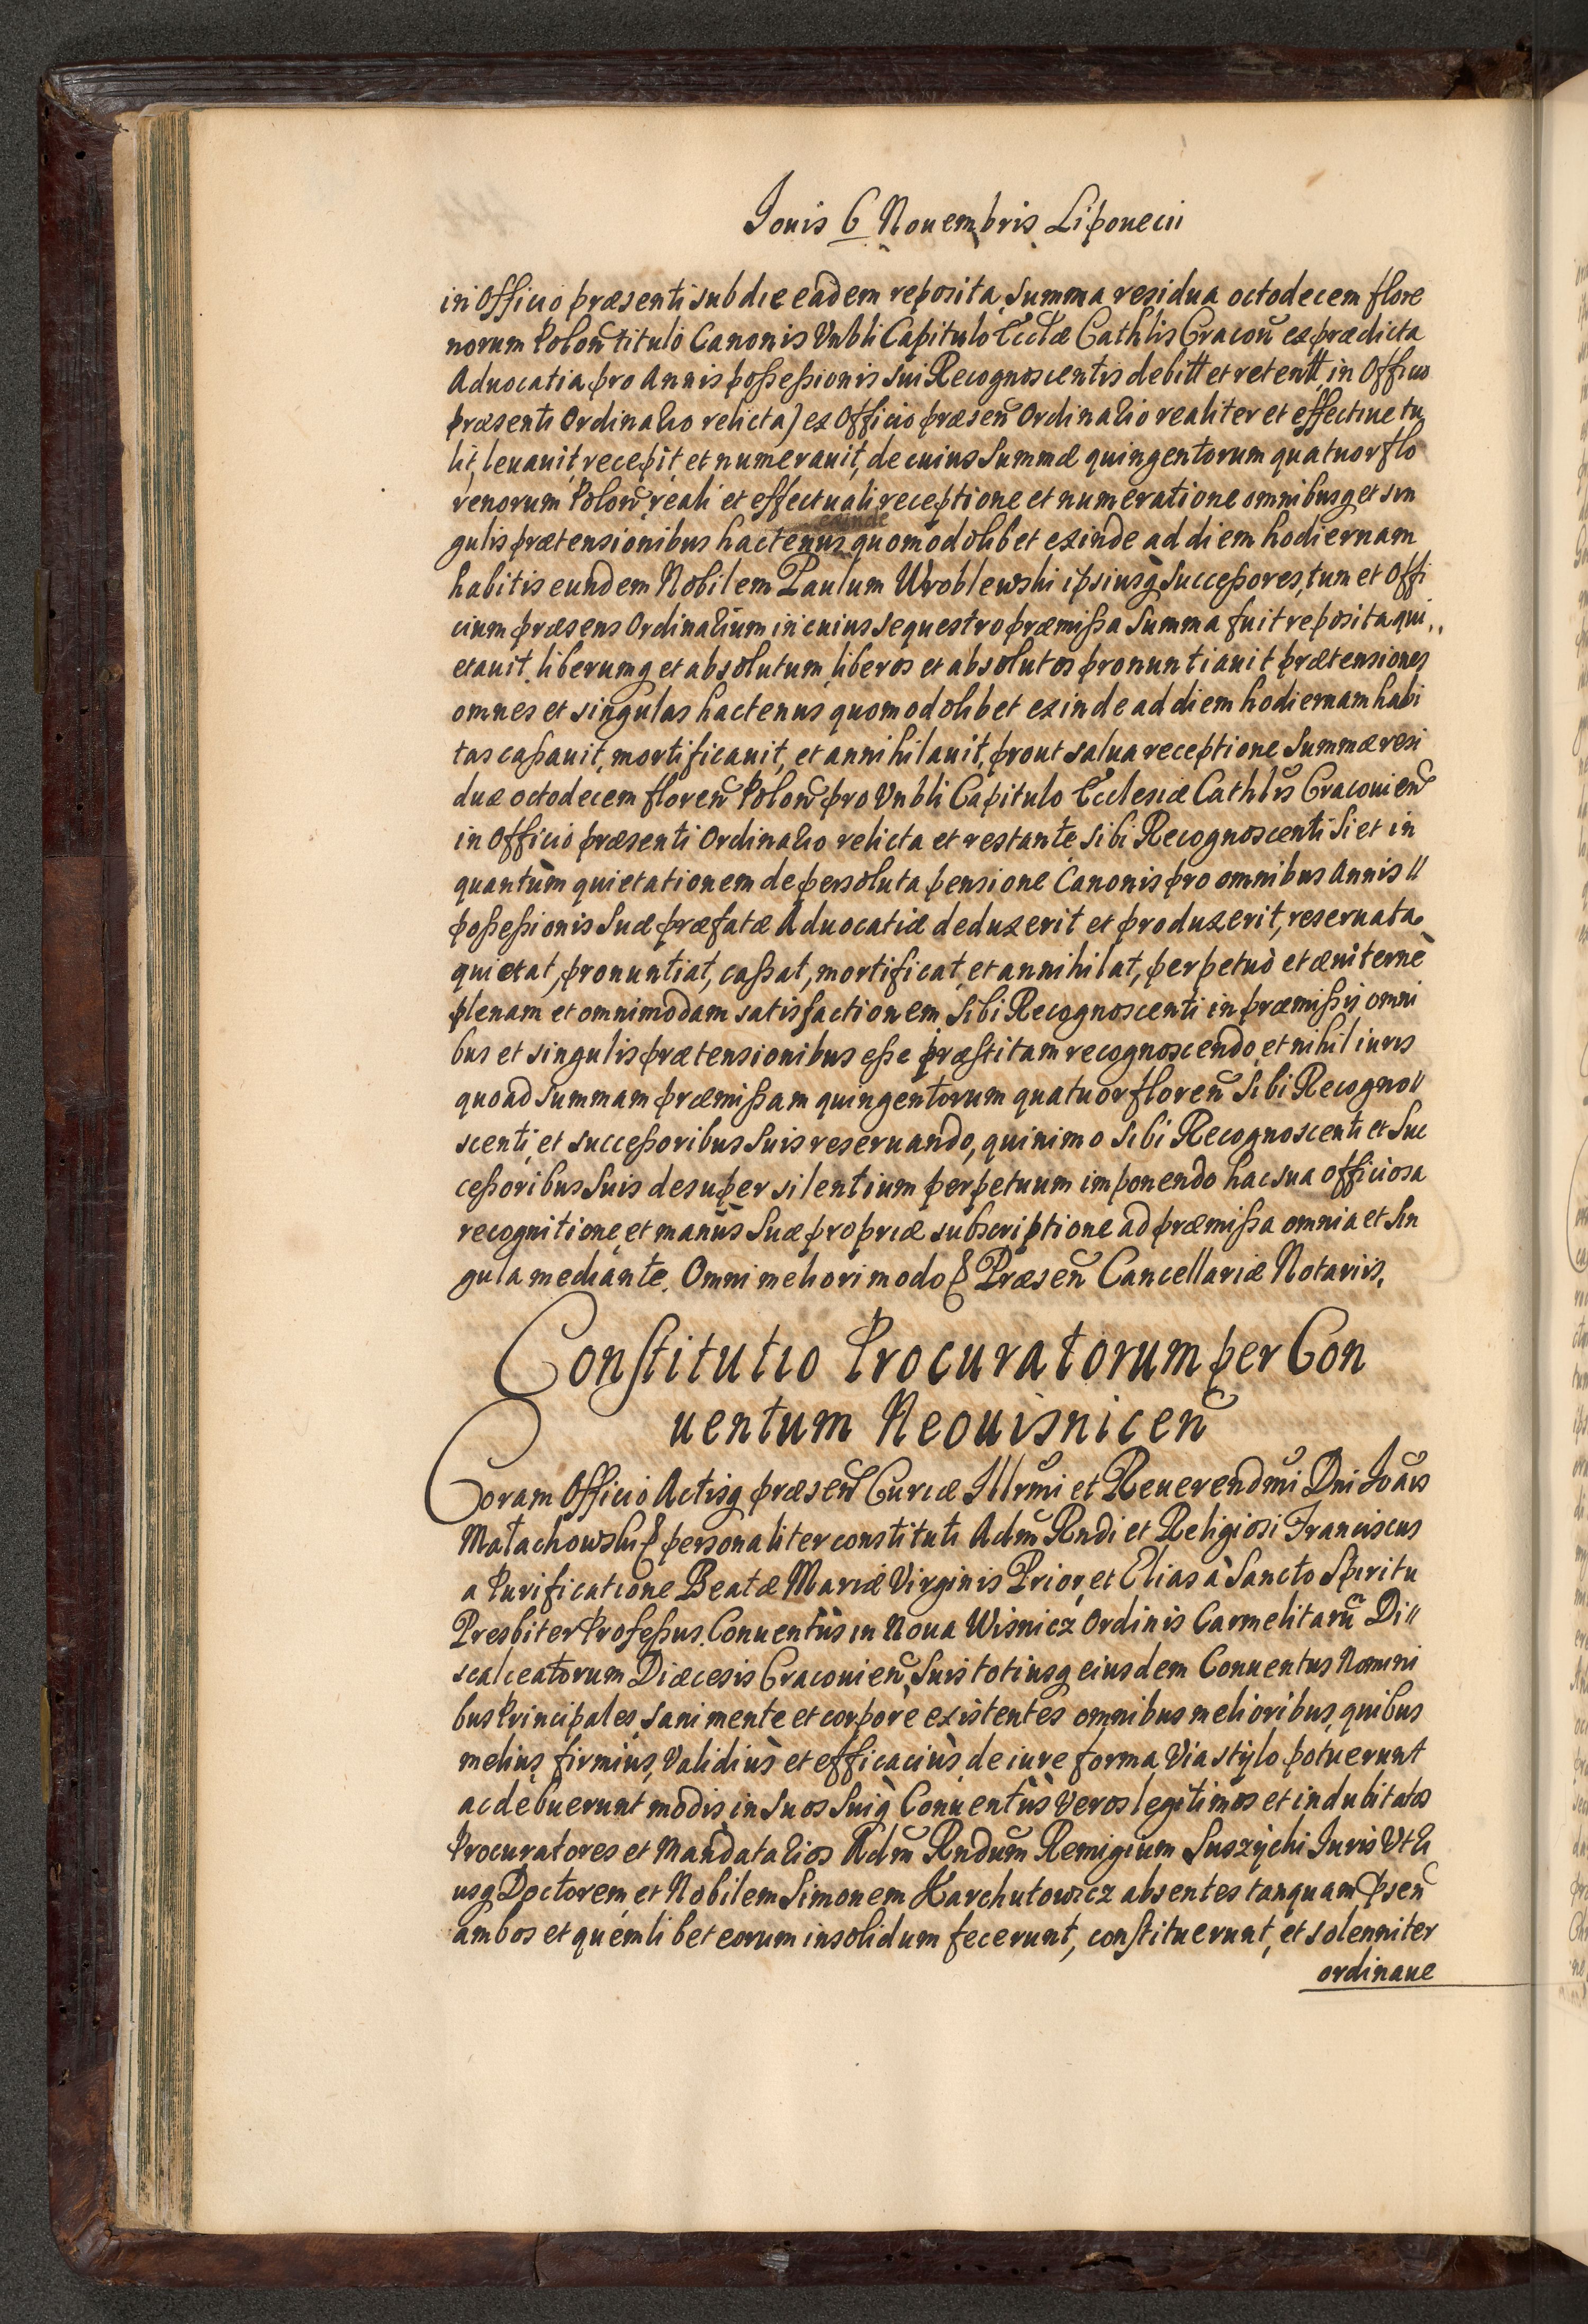 Iouis 6 Nouembris Lipouecii
in Officio præsenti sub die eadem reposita, Summa residua octodecem flore
norum Polon̄ titulo Canonis Vnbli Capitulo Eccl̃æ Cathlis Cracou̅ ex prædicta
Aduocatia pro Annis possessionis sui Recognoscentis debitt et retentt, in Officio
præsenti Ordinario relicta) ex Officio præsen̄ Ordinario realiter et effectiue tu
lit, leuauit, recepit et numerauit, de cuius Summæ quingentorum quatuor flo
renorum Polon̄ reali et effectuali receptione et numeratione omnibusq et sin
gulis prætensionibus hactenus quomodolibet exinde ad diem hodiernam
habitis eundem Nobilem Paulum Wroblewski ipsiusq Successores, tum et Offi
cium præsens Ordinarium in cuius sequestro præmissa Summa fuit reposita qui„
etauit, liberumq et absolutum, liberos et absolutos pronuntiauit prætensiones
omnes et singulas hactenus quomodolibet exinde ad diem hodiernam habi
tas cassauit, mortificauit, et annihilauit, prout salua receptione Summæ resi
duæ octodecem floren̄ Polon̄ pro Vnbli Capitulo Ecclesiæ Cathlis̄ Cracouien̄
in Officio præsenti Ordinario relicta et restante sibi Recognoscenti si et in
quantùm quietationem de persoluta pensione Canonis pro omnibus Annis "
possessionis suæ præfatæ Aduocatiæ deduxerit et produxerit, reseruata,
quietat, pronuntiat, cassat, mortificat, et annihilat, perpetuò et æuiternè
plenam et omnimodam satisfactionem sibi Recognoscenti in præmissis omni
bus et singulis prætensionibus esse præstitam recognoscendo, et nihil iuris
quo ad summam præmissam quingentorum quatuor floren̄ sibi Recogno"
scenti, et successoribus suis reseruando, quinimo sibi Recognoscenti et Suc
cessoribus suis desuper silentium perpetuum imponendo hac sua officiosa
recognitione, et manûs suæ propriæ subscriptione ad præmissa omnia et sin
gula mediante. Omni meliori modo & Præsen̄ Cancellariæ Notariis,
Constitutio Procuratorum per Con
uentum Neouisnicen̄
Coram Officio Actisq præsen̄ Curiæ Illrm̄i et Reuerendm̄i Dni Ioān̄is
Małachowski & personaliter constituti Adm̄ Rndi et Religiosi Franciscus
a Purificatione Beatæ Mariæ Virginis Prior, et Elias à Sancto Spiritu
Presbiter Professus Conuentûs in Noua Wisnicz Ordinis Carmelitarū Di"
scalceatorum Diæcesis Cracouien̄, suis totiusq eiusdem Conuentus Nomini
bus Principales, sani mente et corpore existentes omnibus melioribus, quibus
melius, firmius, validiùs et efficaciùs de iure forma, via stylo potuerunt
ac debuerunt modis, in suos suiq Conuentûs veros legitimos et indubitatos
Procuratores et Mandatarios Adm̄ Rndum̄ Remigium Suszycki Iuris Vtri
usq Doctorem, et Nobilem Simonem Karchutowicz absentes tanquam p̄sen̄
ambos et quemlibet eorum in solidum fecerunt, constituerunt, et solenniter
ordinaue